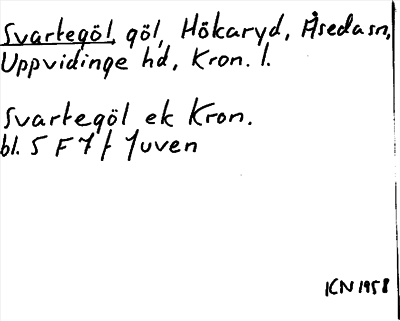 Svartegöl, göl, Hökaryd, Åsedasn,
Uppvidinge hd, Kron. l.
Svartegöl ek Kron.
bl. 5 F 7 f Juven
KN 1958